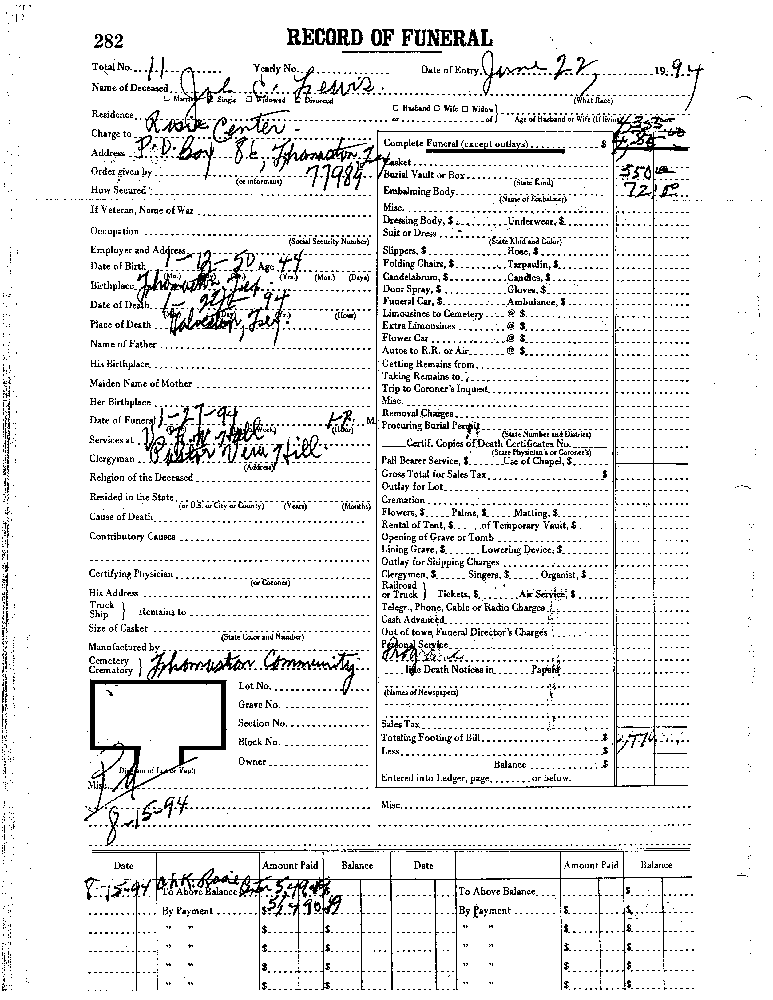 282 RECORD OF FUNERAL
Total No. 11 Yearly No. Date of Entry June 22, 1994
Name of Deceased C. Lewis
Married Single Widowed Divorced (What Race)
Residence Husband Wife Widow
or of Age of Husband or Wife (If living)
Charge to Rosie Center
Address P.O. Box 86, Thomaston
Order given by 77989
(or informant)
How Secured
If Veteran, Name of War
Occupation
(Social Security Number)
Employer and Address
Date of Birth 1-12-50 Age 44
(Mo.) (Yrs.) (Mos.) (Days)
Birthplace Thomaston, Tex.
Date of Death 1-22-94
Place of Death Galveston, Tex. (Hour)
Name of Father
His Birthplace
Maiden Name of Mother
Her Birthplace
Date of Funeral 1-27-94 M.
Services at
Clergyman Pastor Hill
(Address)
Religion of the Deceased
Resided in the State
(or U.S. or City or County) (Years) (Months)
Cause of Death
Contributory Causes
Certifying Physician
(or Coroner)
His Address
Truck
Ship } Remains to
Size of Casket
(State Color and Number)
Manufactured by
Cemetery
Crematory } Thomaston Community
Lot No.
Grave No.
Section No.
Block No.
Owner
Misc.
Pd
8-15-94
Complete Funeral (except outlays) $
Casket
Burial Vault or Box 350
(State Kind)
Embalming Body 72
(Name of Embalmer)
Misc.
Dressing Body, $ Underwear, $
Suit or Dress
(State Kind and Color)
Slippers, $ Hose, $
Folding Chairs, $ Tarpaulin, $
Candelabrum, $ Candles, $
Door Spray, $ Gloves, $
Funeral Car, $ Ambulance, $
Limousines to Cemetery @ $
Extra Limousines @ $
Flower Car @ $
Autos to R.R. or Air @ $
Getting Remains from
Taking Remains to
Trip to Coroner's Inquest
Misc.
Removal Charges
Procuring Burial Permit
(State Number and District)
Certif. Copies of Death Certificates No.
(State Physician's or Coroner's)
Pall Bearer Service, $ Use of Chapel, $
Gross Total for Sales Tax $
Outlay for Lot
Cremation
Flowers, $ Palms, $ Matting, $
Rental of Tent, $ of Temporary Vault, $
Opening of Grave or Tomb
Lining Grave, $ Lowering Device, $
Outlay for Shipping Charges
Clergymen, $ Singers, $ Organist, $
Railroad
or Truck } Tickets, $ Air Service, $
Telegr., Phone, Cable or Radio Charges
Cash Advanced
Out of town Funeral Director's Charges
Personal Service
Death Notices in Papers
(Names of Newspapers)
Sales Tax
Totaling Footing of Bill $
Less $
Balance $
Entered into Ledger, page or below.
Misc.
Date Amount Paid Balance Date Amount Paid Balance
8-15-94 To Above Balance To Above Balance $
By Payment $ By Payment $ $
" " $ $ " " $ $
" " $ $ " " $ $
" " $ $ " " $ $
" " $ $ " " $ $